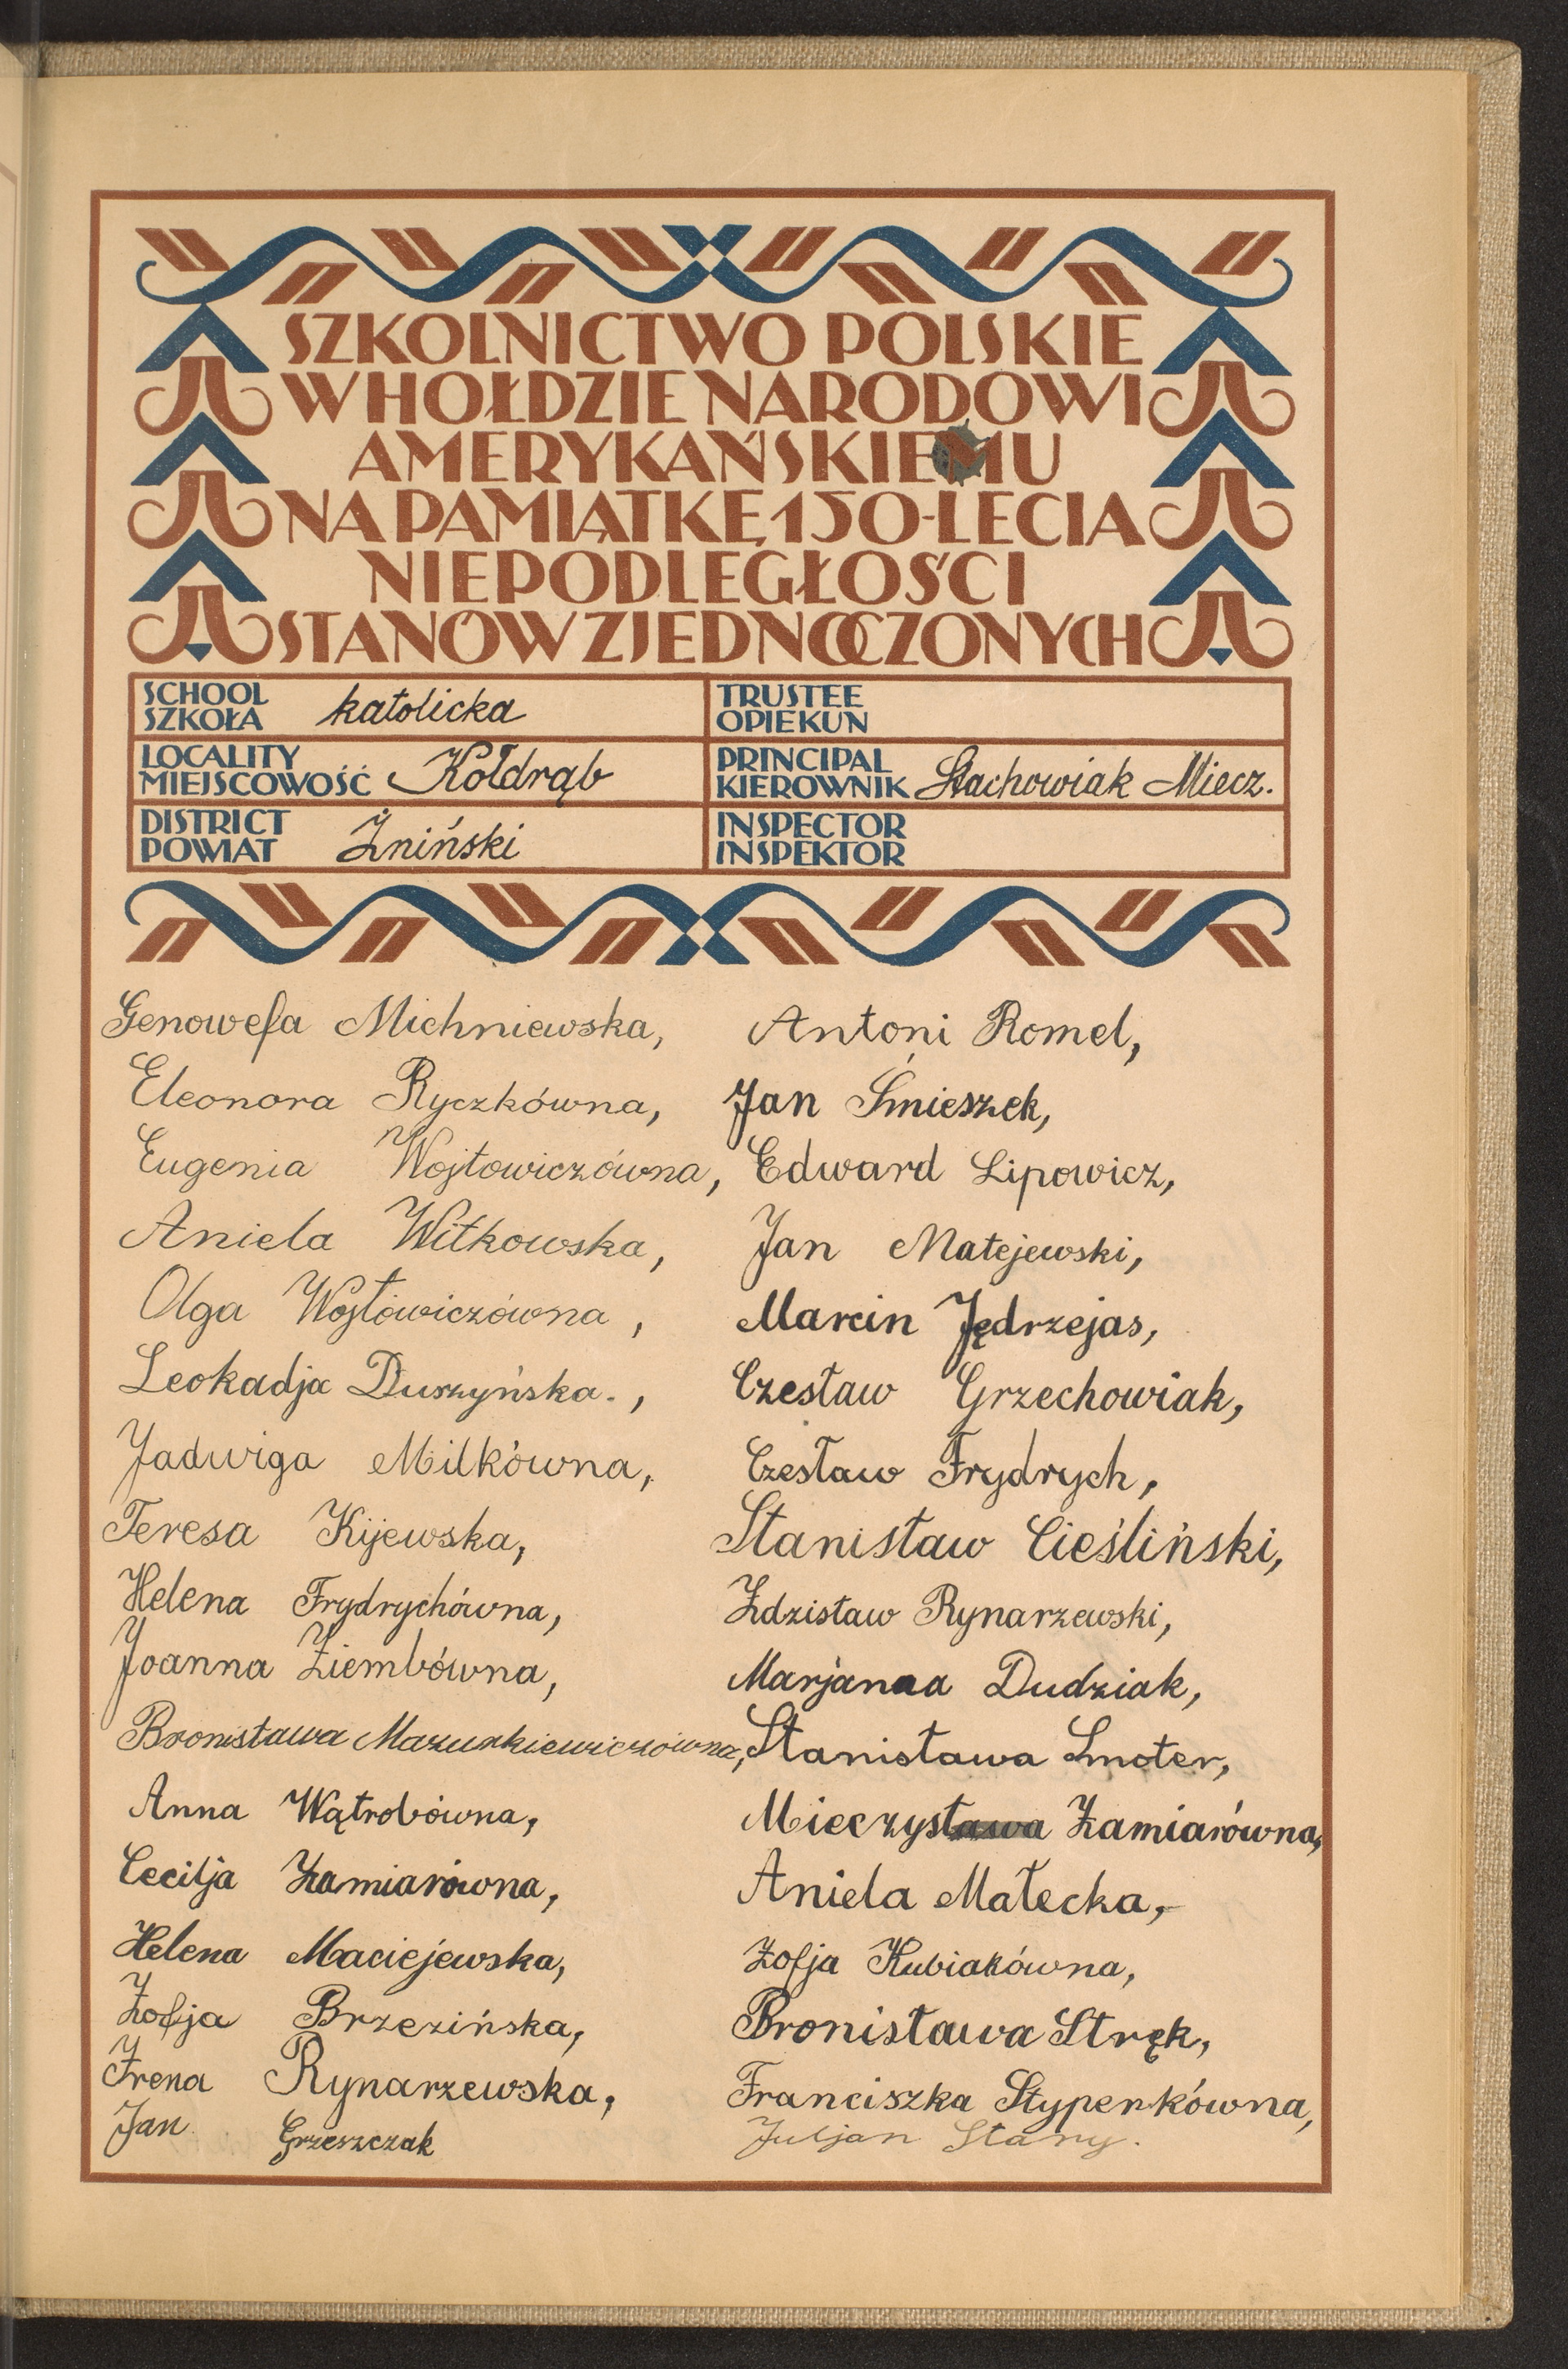 SZKOLNICTWO POLSKIE
W HOŁDZIE NARODOWI
AMERYKAŃSKIEMU
NA PAMIĄTKĘ 150-LECIA
NIEPODLEGŁOŚCI
STANÓW ZJEDNOCZONYCH
SCHOOL
SZKOŁA katolicka
TRUSTEE
OPIEKUN
LOCALITY
MIEJSCOWOŚĆ Kołdrąb
PRINCIPAL
KIEROWNIK Stachowiak Miecz.
DISTRICT
POWIAT Żniński
INSPECTOR
INSPEKTOR
Genowefa Michniewska,
Eleonora Ryczkówna,
Eugenia Wojtowiczówna,
Aniela Witkowska,
Olga Wojtowiczówna,
Leokadja Duszyńska.,
Jadwiga Milkówna,
Teresa Kijewska,
Helena Frydrychówna,
Joanna Ziembówna,
Bronisława Mazurkiewiczówna,
Anna Wątrobówna,
Cecilja Żamiarówna,
Helena Maciejewska,
Zofja Brzezińska,
Irena Rynarzewska,
Jan Grzeszczak
Antoni Romel,
Jan Śmieszek,
Edward Lipowicz,
Jan Matejewski,
Marcin Jędrzejas,
Czesław Grzechowiak,
Czesław Frydrych,
Stanisław Cieśliński,
Zdzisław Rynarzewski,
Marjanna Dudziak,
Stanisława Smoter,
Mieczysława Żamiarówna,
Aniela Małecka,
Zofja Kubiakówna,
Bronisława Stręk,
Franciszka Styperkówna,
Juljan Stany.